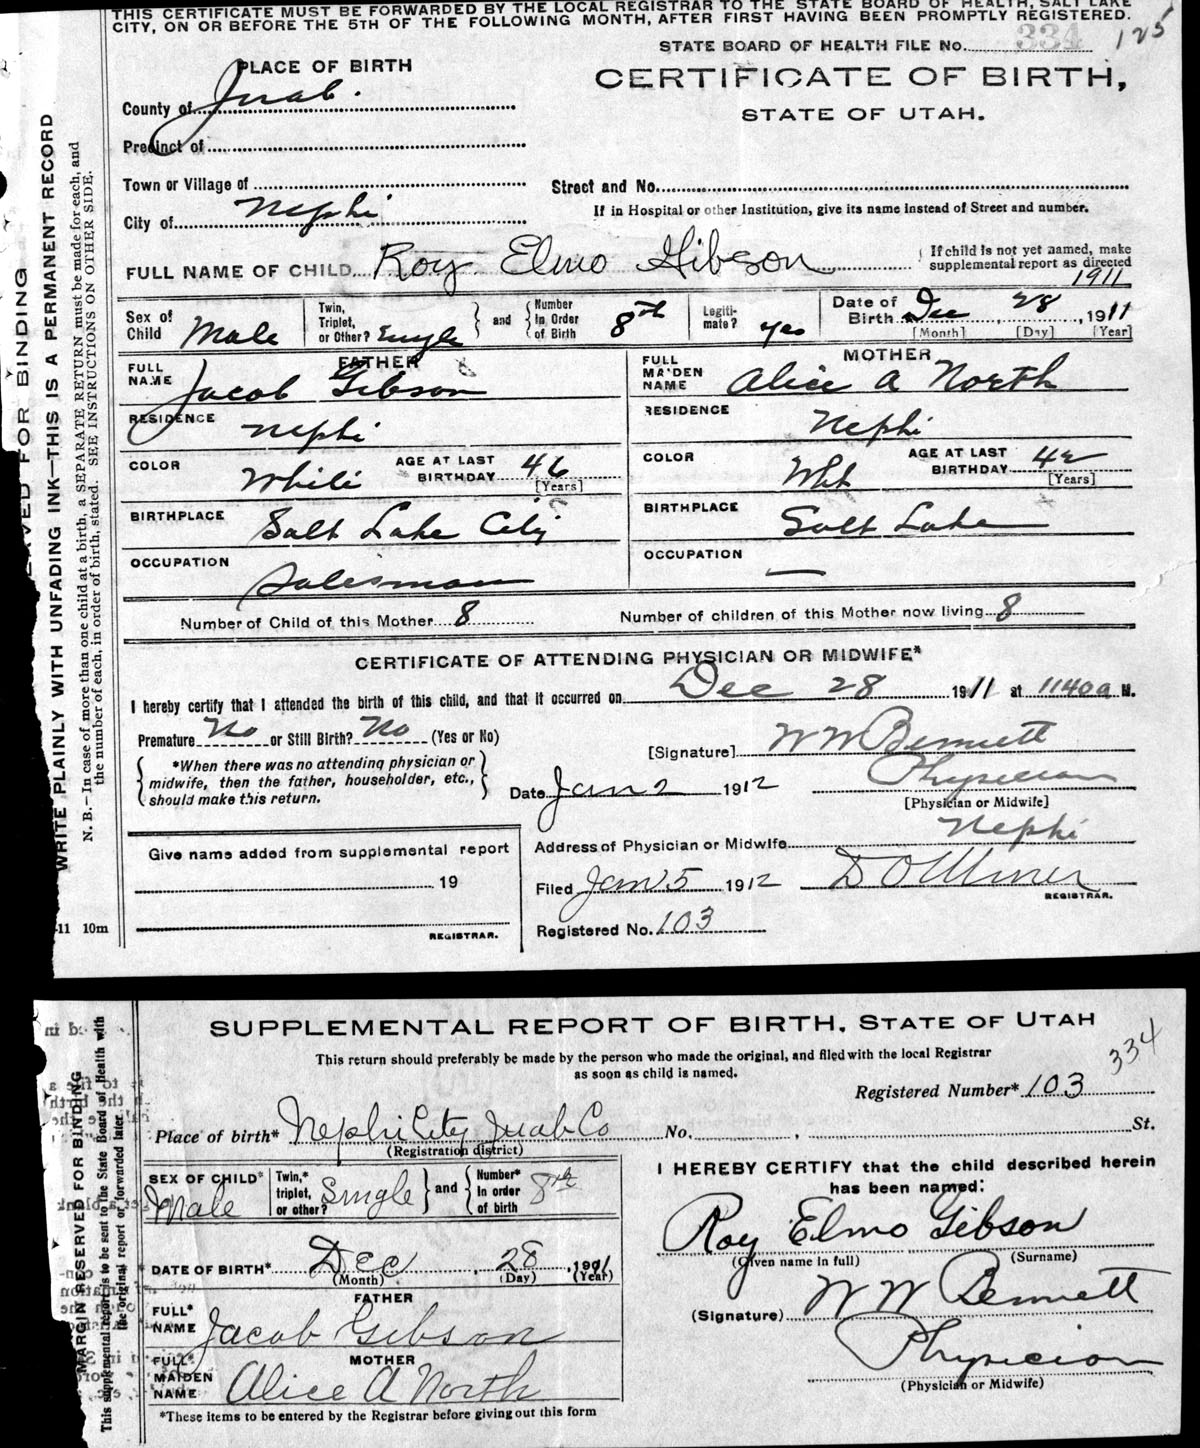 THIS CERTIFICATE MUST BE FORWARDED BY THE LOCAL REGISTRAR TO THE STATE BOARD OF HEALTH, SALT LAKE
CITY, ON OR BEFORE THE 5TH OF THE FOLLOWING MONTH, AFTER FIRST HAVING BEEN PROMPTLY REGISTERED.
STATE BOARD OF HEALTH FILE No. 334 125
PLACE OF BIRTH
CERTIFICATE OF BIRTH,
STATE OF UTAH.
County of Juab.
Precinct of
Town or Village of
Street and No.
City of Nephi
If in Hospital or other Institution, give its name instead of Street and number.
FULL NAME OF CHILD Roy Elmo Gibson
If child is not yet named, make
supplemental report as directed
1911
Sex of Child Male
Twin, Triplet, or Other? Single
and
Number In Order of Birth 8th
Legiti-mate? yes
Date of Birth Dec 28, 1911
[Month] [Day] [Year]
FATHER
FULL NAME Jacob Gibson
RESIDENCE Nephi
COLOR White
AGE AT LAST BIRTHDAY 46
[Years]
BIRTHPLACE Salt Lake City
OCCUPATION Salesman
MOTHER
FULL MAIDEN NAME Alice A North
RESIDENCE Nephi
COLOR Wht
AGE AT LAST BIRTHDAY 42
[Years]
BIRTHPLACE Salt Lake
OCCUPATION —
Number of Child of this Mother 8
Number of children of this Mother now living 8
CERTIFICATE OF ATTENDING PHYSICIAN OR MIDWIFE*
I hereby certify that I attended the birth of this child, and that it occurred on Dec 28 1911 at 1140a M.
Premature No or Still Birth? No (Yes or No)
[Signature] W W Bennett
*When there was no attending physician or
midwife, then the father, householder, etc.,
should make this return.
Date Jan 2 1912
Physician
[Physician or Midwife]
Address of Physician or Midwife Nephi
Give name added from supplemental report
19
REGISTRAR.
Filed Jan 5 1912 D O Miner
REGISTRAR.
Registered No. 103
-11 10m
LEAVED FOR BINDING
WRITE PLAINLY WITH UNFADING INK—THIS IS A PERMANENT RECORD
N. B.—In case of more than one child at a birth, a SEPARATE RETURN must be made for each, and
the number of each, in order of birth, stated. SEE INSTRUCTIONS ON OTHER SIDE.
SUPPLEMENTAL REPORT OF BIRTH, STATE OF UTAH
This return should preferably be made by the person who made the original, and filed with the local Registrar
as soon as child is named.
334
Registered Number* 103
Place of birth* Nephi City Juab Co No. , St.
(Registration district)
SEX OF CHILD* Male
Twin,* triplet, or other? Single
and
Number* In order of birth 8th
DATE OF BIRTH* Dec 28, 1911
(Month) (Day) (Year)
FATHER
FULL* NAME Jacob Gibson
MOTHER
FULL* MAIDEN NAME Alice A North
*These items to be entered by the Registrar before giving out this form
I HEREBY CERTIFY that the child described herein
has been named:
Roy Elmo Gibson
(Given name in full) (Surname)
(Signature) W W Bennett
Physician
(Physician or Midwife)
MARGIN RESERVED FOR BINDING
This supplemental report is to be sent to the State Board of Health with
the original report or forwarded later